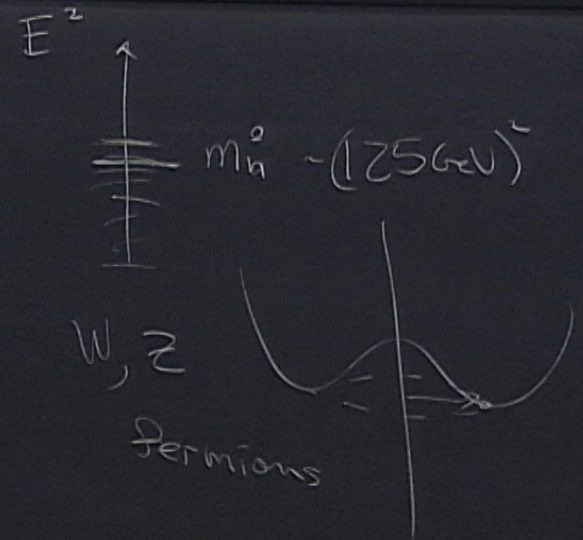 E²
m²ₕ ~(125GeV)²
W, Z
fermions